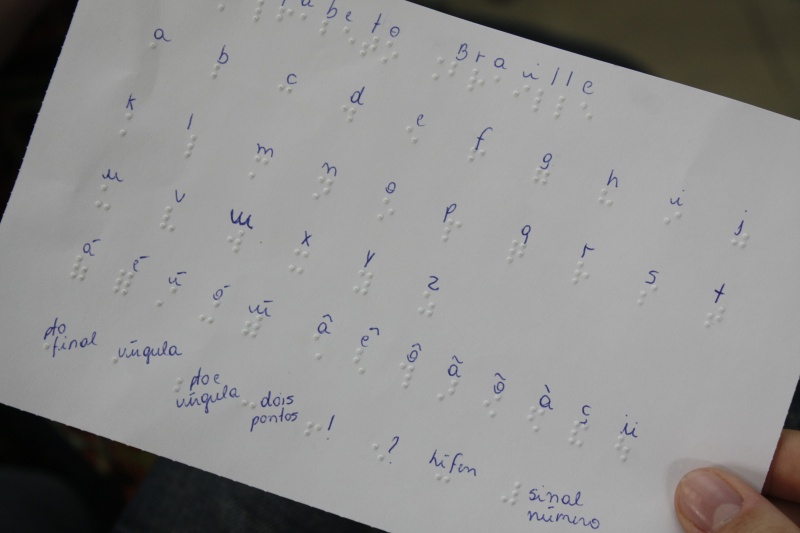 Braille
a b c d e f g h i j
k l m n o p q r s t
u v w x y z
á é í ó ú â ê ô ã õ à ç ü
pto final vírgula pto e vírgula dois pontos ! ? hífen sinal número